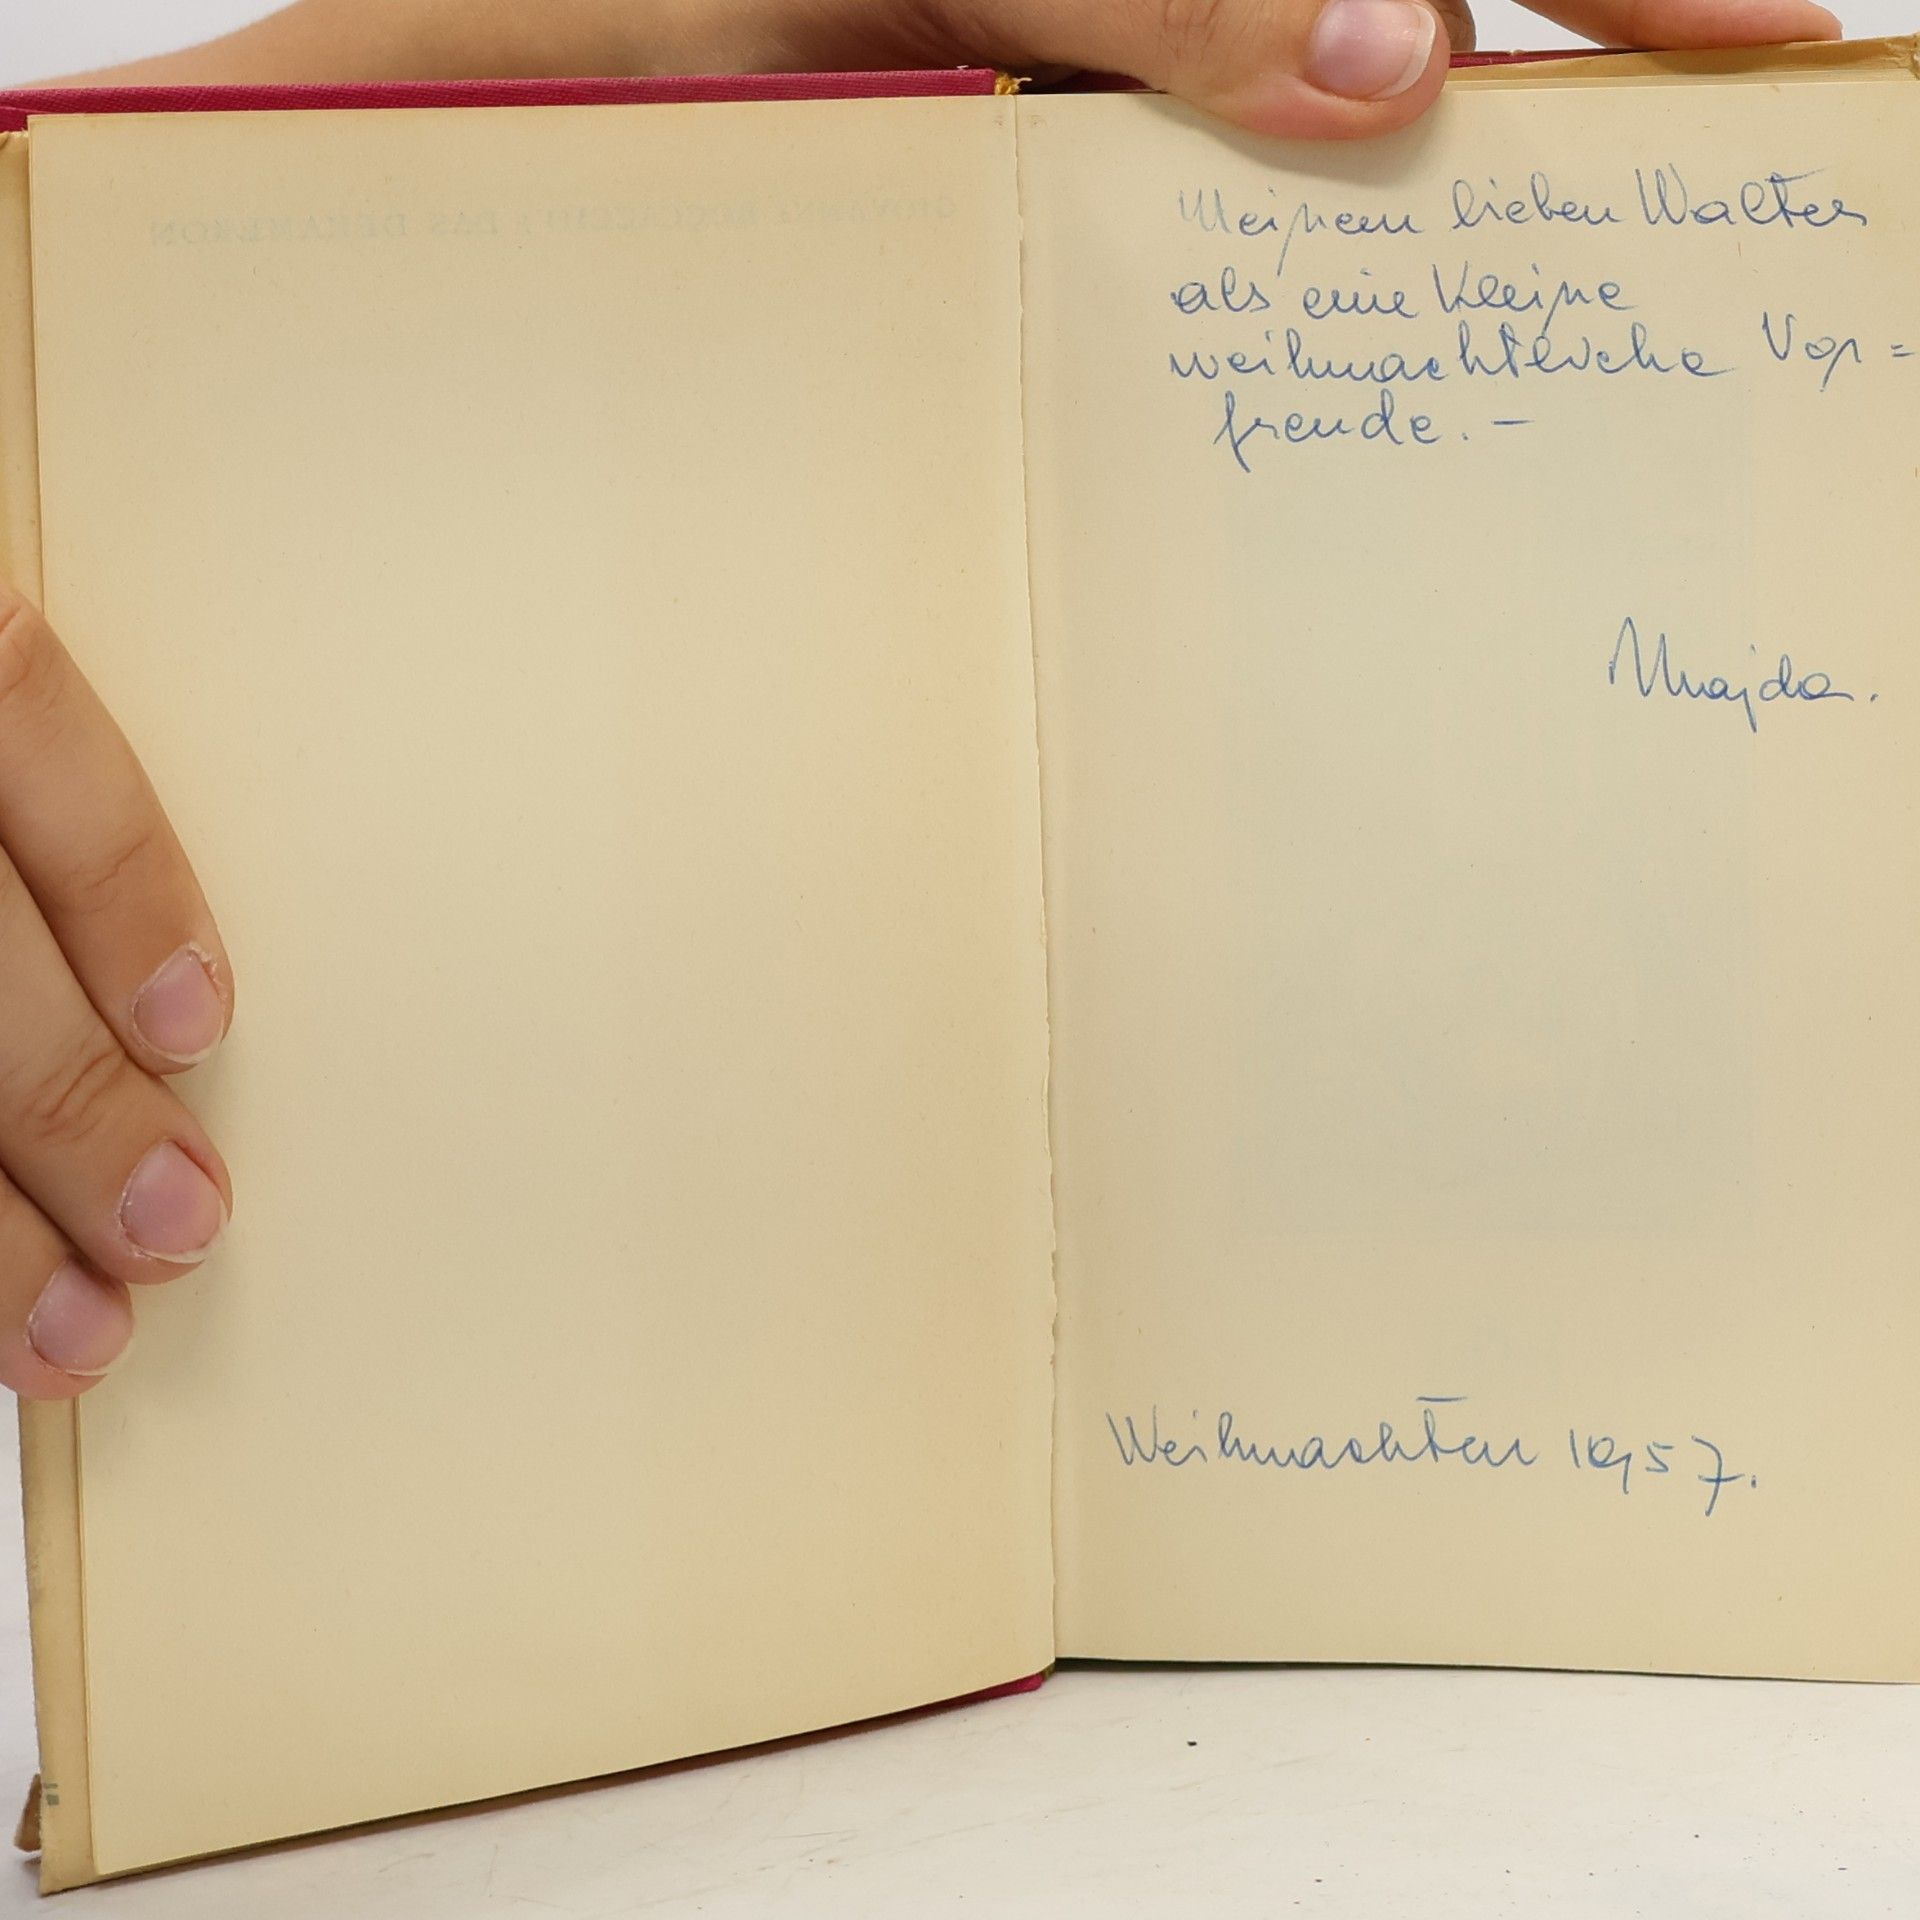 GIOVANNI BOCCACCIO / DAS DEKAMERON
Meinem lieben Walter
als eine kleine
weihnachtliche Vor=
freude. –
Majda.
Weihnachten 1957.